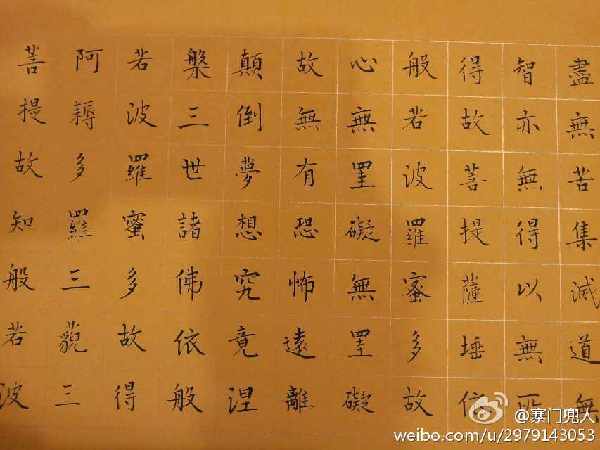 盡無苦集滅道無
智亦無得以無所
得故菩提薩埵依
般若波羅蜜多故
心無罣礙無罣礙
故無有恐怖遠離
顛倒夢想究竟涅
槃三世諸佛依般
若波羅蜜多故得
阿耨多羅三藐三
菩提故知般若波
@寨门兜人
weibo.com/u/2979143053